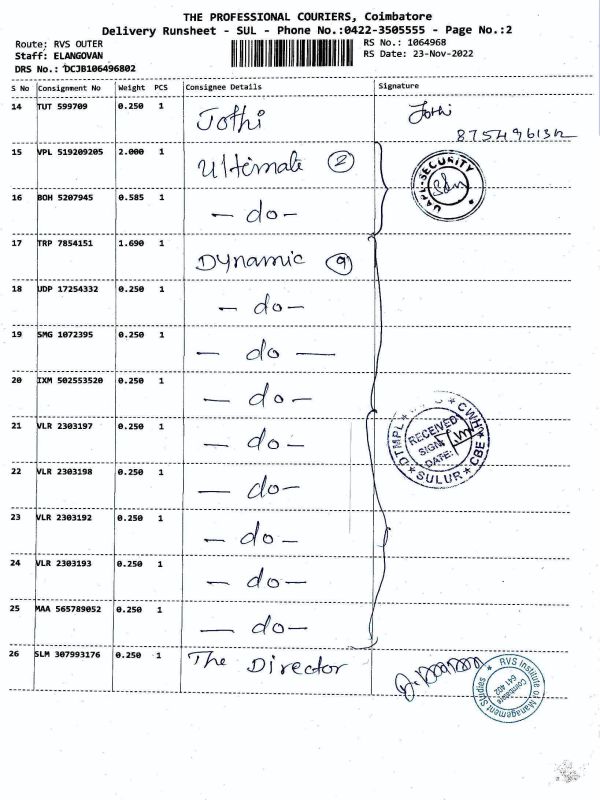 THE PROFESSIONAL COURIERS, Coimbatore
Delivery Runsheet - SUL - Phone No.:0422-3505555 - Page No.:2
Route: RVS OUTER
RS No.: 1064968
Staff: ELANGOVAN
RS Date: 23-Nov-2022
DRS No.: DCJB106496802
S No Consignment No Weight PCS Consignee Details Signature
14 TUT 599709 0.250 1 Jothi Jothi
15 VPL 519209205 2.000 1 Ultimate 2
UAPL-SECURITY
16 BOH 5207945 0.585 1 - do -
17 TRP 7854151 1.690 1 Dynamic 9
18 UDP 17254332 0.250 1 - do -
19 SMG 1072395 0.250 1 - do -
20 IXM 502553520 0.250 1 - do -
21 VLR 2303197 0.250 1 - do -
DTMPL CWH CBE SULUR
RECEIVED
SIGN:
DATE:
22 VLR 2303198 0.250 1 - do -
23 VLR 2303192 0.250 1 - do -
24 VLR 2303193 0.250 1 - do -
25 MAA 565789052 0.250 1 - do -
26 SLM 307993176 0.250 1 The Director
RVS Institute of Management Studies
Coimbatore
641 402